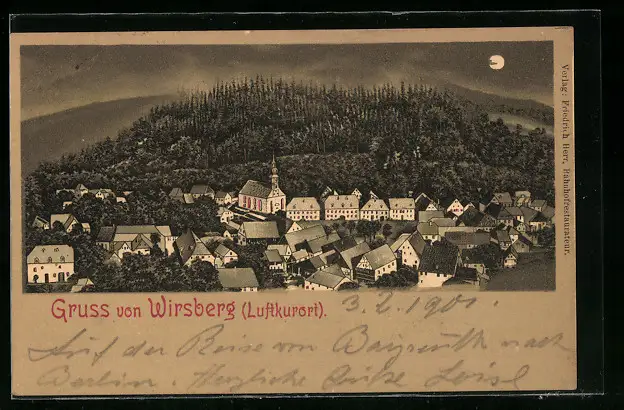 Verlag: Friedrich Herr, Bahnhofrestaurateur.
Gruss von Wirsberg (Luftkurort).
3.2.1901.
Auf der Reise von Bayreuth nach
Berlin. Herzliche Grüße